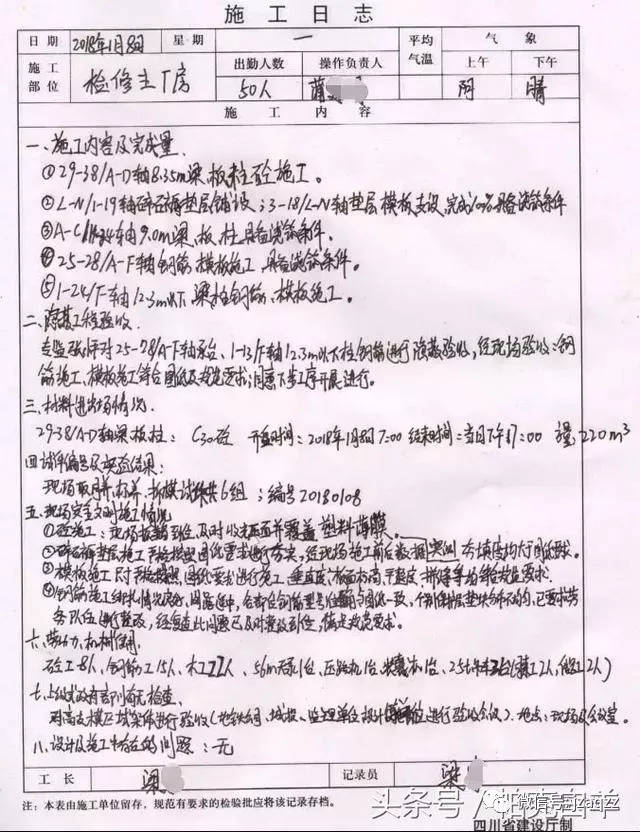 施工日志
日期 2018年1月8日 星期 一 平均气温 气象
施工部位 检修主厂房 出勤人数 操作负责人 上午 下午
50人 蒲 阴 晴
施工内容
一、施工内容及完成量
①29-38/A-D轴8.35m梁、板柱砼施工。
②L-N/1-19轴碎石褥垫层铺设;3-18/L-N轴垫层模板支设,完成100%具备浇筑条件
③A-C/ 轴9.0m梁、板、柱具备浇筑条件。
④25-28/A-F轴钢筋模板施工,具备浇筑条件。
⑤1-24/F轴12.3m以下梁柱钢筋、模板施工。
二、隐蔽工程验收
专监张 对25-28/A-F轴承台、1-13/F轴12.3m以下柱钢筋进行隐蔽验收,经现场验收:钢
筋施工、模板施工符合图纸及规范要求;同意下步工序开展进行。
三、材料进出场情况
29-38/A-D轴梁板柱:C30砼 开盘时间:2018年1月8日7:00 结束时间:当日下午17:00 方量:220m³
四、试件编号及实验结果:
现场取 标养、拆模试块共6组;编号20180108
五、现场安全文明施工情况
①砼施工:现场振捣到位,及时收 面并覆盖塑料薄膜。
②碎石褥垫层施工严格按照图纸要求进行夯实,经现场施工前后数据实测,夯填度均大于图纸要求。
③模板施工尺寸严格按照图纸要求进行施工,垂直度、顶面标高、平整度、拼缝等均符合规范要求.
④钢筋施工绑扎情况良好,间距适中,合格后钢筋型号 与图纸一致,个别保护层垫块分布不均,已要求劳
务队伍进行整改,经复查此问题已及时整改到位,满足规范要求。
六、劳动力、机械使用
砼工8人、钢筋工15人、木工 人、56m天泵1台、压路机1台、装载机1台、25t 台( 工2人, 工2人)
七、上级或政府部门有无检查
对高支模区域架体进行验收(地铁公司、城投、监理单位、设计 单位进行验收会议)。地点:现场及会议室。
八、设计及施工中存在的问题:无
工长 梁 记录员 梁
注:本表由施工单位留存,规范有要求的检验批应将该记录存档。
四川省建设厅制
头条号/
微信号: